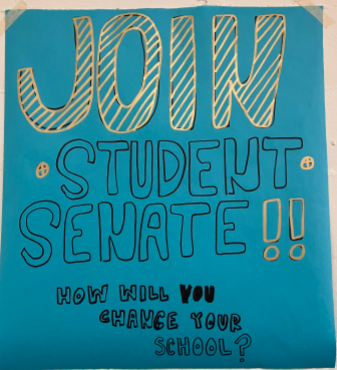 JOIN
STUDENT
SENATE!!
HOW WILL YOU
CHANGE YOUR
SCHOOL?